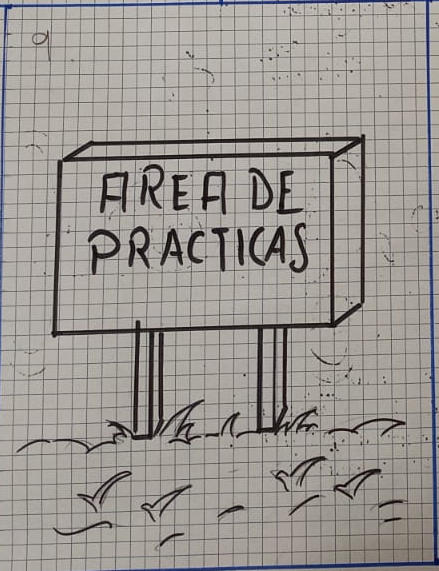 9
AREA DE
PRACTICAS